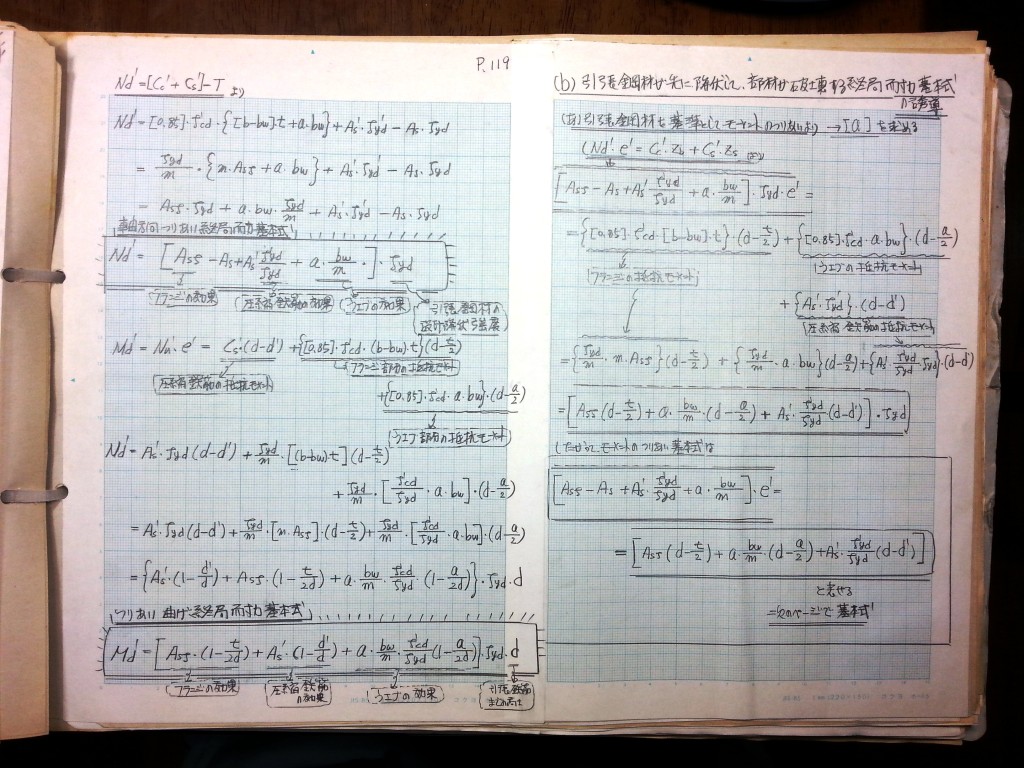 P.119
Nd' = [Cc' + Cs'] - T より
Nd' = [0.85]・f'cd・{[b-bw]・t + a・bw} + As'・f'yd - As・fyd
= fyd/m・{m・Asf + a・bw} + As'・f'yd - As・fyd
= Asf・fyd + a・bw・fyd/m + As'・f'yd - As・fyd
軸方向つりあい終局耐力基本式
Nd' = [Asf - As + As' f'yd/fyd + a・bw/m]・fyd
フランジの効果 圧縮鉄筋の効果 ウェブの効果 引張鋼材の設計降伏強度
Md' = Nu'・e' = Cs'(d-d') + {[0.85]・f'cd・(b-bw)・t}(d-t/2)
圧縮鉄筋の抵抗モーメント フランジ部の抵抗モーメント
+{[0.85]・f'cd・a・bw}・(d-a/2)
ウェブ部の抵抗モーメント
Nd' = As'・fyd(d-d') + fyd/m・[(b-bw)t](d-t/2)
+ fyd/m・[f'cd/fyd・a・bw]・(d-a/2)
= As'・fyd(d-d') + fyd/m・[m・Asf]・(d-t/2) + fyd/m・[f'cd/fyd・a・bw]・(d-a/2)
= {As'・(1-d'/d) + Asf・(1-t/2d) + a・bw/m・f'cd/fyd(1-a/2d)}・fyd・d
つりあい曲げ終局耐力基本式
Md' = [Asf・(1-t/2d) + As'・(1-d'/d) + a・bw/m・f'cd/fyd(1-a/2d)]・fyd・d
フランジの効果 圧縮鉄筋の効果 ウェブの効果 引張鉄筋
(b) 引張鋼材が先に降伏して、部材が破壊する終局耐力基本式の誘導
(あ) 引張鋼材を基準としてモーメントのつりあいより → [a]を求める
(Nd'・e' = Cc'・Zb + Cs'・Zs より)
[Asf - As + As' f'yd/fyd + a・bw/m]・fyd・e' =
= {[0.85]・f'cd・[b-bw]・t}・(d-t/2) + {[0.85]・f'cd・a・bw}・(d-a/2)
フランジの抵抗モーメント ウェブの抵抗モーメント
+ {As'・f'yd}・(d-d')
圧縮鉄筋の抵抗モーメント
= {fyd/m・m・Asf}(d-t/2) + {fyd/m・a・bw}(d-a/2) + {As'・f'yd/fyd・fyd}・(d-d')
= [Asf(d-t/2) + a・bw/m・(d-a/2) + As'・f'yd/fyd(d-d')]・fyd
したがって、モーメントのつりあい基本式は
[Asf - As + As'・f'yd/fyd + a・bw/m]・e' =
= [Asf(d-t/2) + a・bw/m・(d-a/2) + As'・f'yd/fyd(d-d')]
と表せる
=次のページで基本式